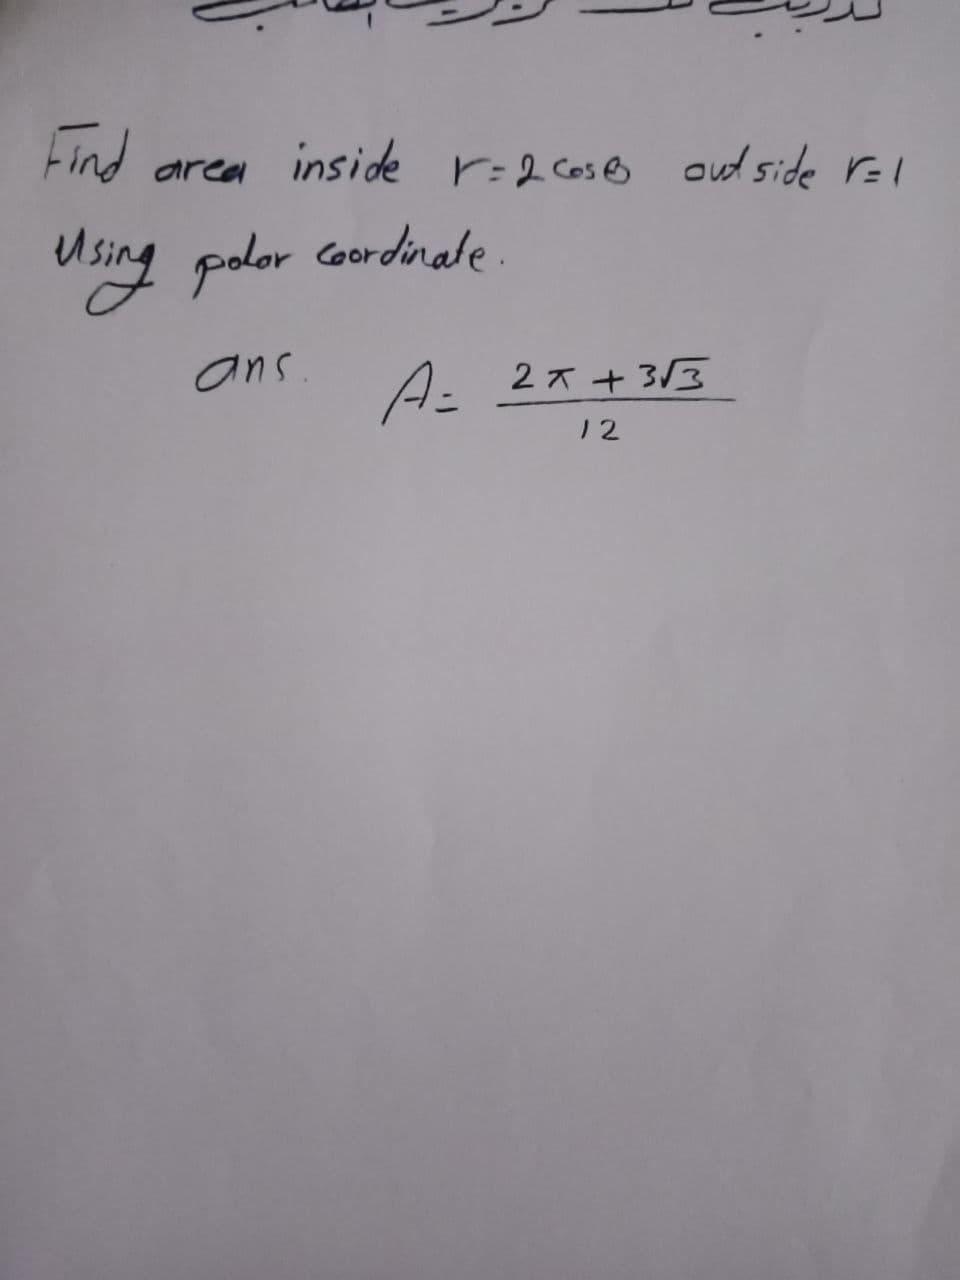 Find area inside r=2 cos θ out side r=1
Using polar coordinate.
ans. A= (2π + 3√3)/12